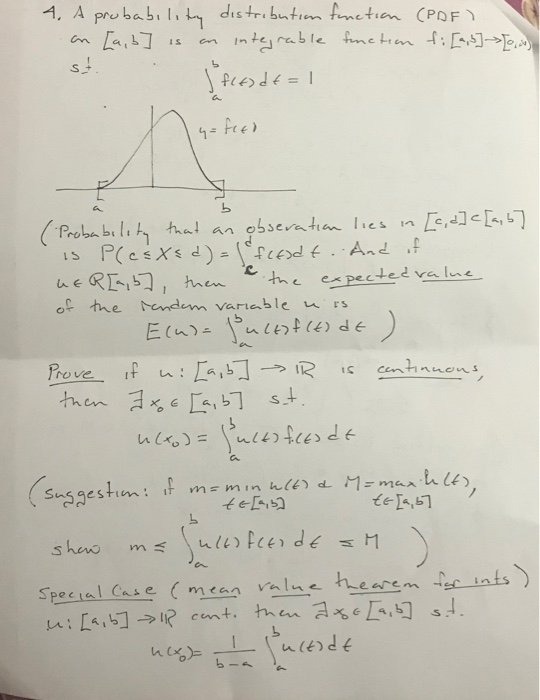 4. A probability distribution function (PDF)
on [a,b] is an integrable function f: [a,b]→[0,∞)
s.t.
∫_a^b f(t)dt = 1
y = f(t)
a b
(Probability that an obseration lies in [c,d]⊂[a,b]
is P(c≤X≤d) = ∫_c^d f(t)dt. And if
u∈R[a,b], then the expected value
of the random variable u is
E(u) = ∫_a^b u(t)f(t) dt )
Prove if u: [a,b] → ℝ is continuous,
then ∃x₀∈[a,b] s.t.
u(x₀) = ∫_a^b u(t)f(t)dt
(Suggestion: if m = min u(t) & M = max u(t),
t∈[a,b] t∈[a,b]
show m ≤ ∫_a^b u(t)f(t) dt ≤ M )
Special Case (mean value theorem for ints)
u: [a,b] → ℝ cont. then ∃x₀∈[a,b] s.t.
u(x₀) = 1/(b-a) ∫_a^b u(t)dt